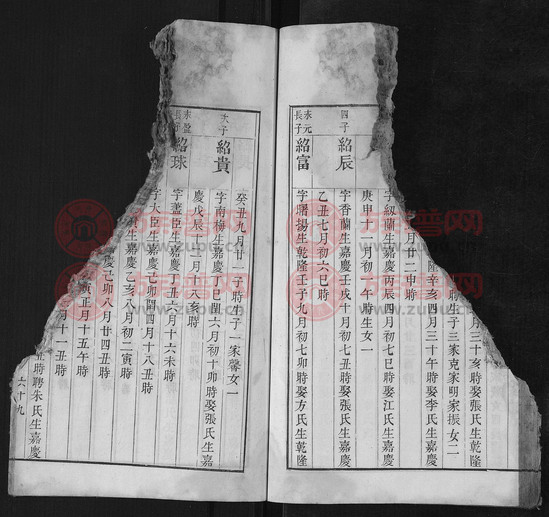 月三十亥時娶張氏生乾隆
聘生子三家克家明家振女二
隆辛亥四月三十午時娶李氏生嘉慶
月廿二申時
字紉蘭生嘉慶丙辰四月初七巳時娶江氏生嘉慶
庚申十一月初一午時生女一
四子 紹辰 字香蘭生嘉慶壬戌十月初七丑時娶張氏生嘉慶
乙丑七月初六巳時
永元長子 紹富 字曙揚生乾隆壬子九月初七卯時娶方氏生乾隆
癸丑九月廿一子時生子一家馨女一
次子 紹貴 字南梅生嘉慶丁巳閏六月初十卯時娶張氏生嘉
慶戊辰十二月十八亥時
永盈長子 紹球 字蓋臣生嘉慶丁丑六月十六未時
字大臣生嘉慶己卯閏四月十八丑時
生嘉慶乙亥八月初二寅時
慶己卯八月廿四丑時
寅正月十五午時
初十一丑時
丑時聘朱氏生嘉慶
六十九
族譜网
www.zupu.cn
族譜网
www.zupu.cn